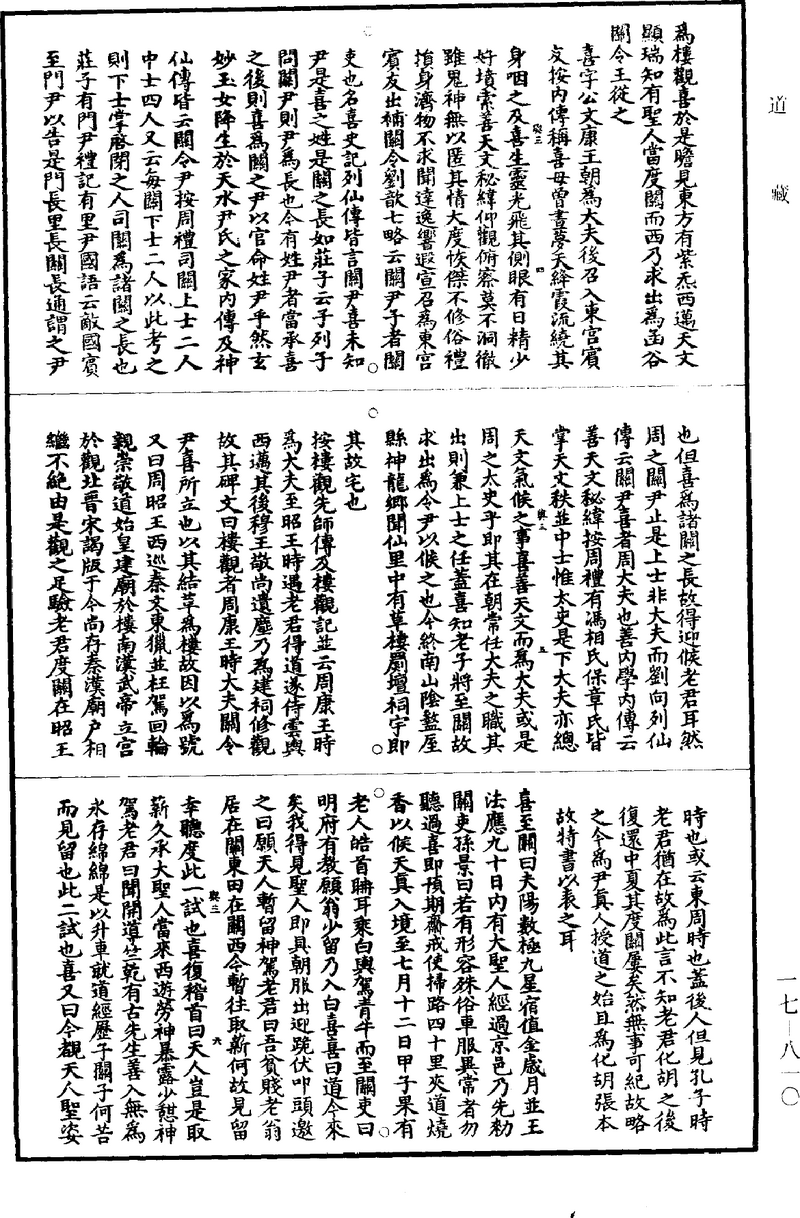 道藏
為樓觀喜於是瞻見東方有紫炁西邁天文
顯瑞知有聖人當度關而西乃求出為函谷
關令王從之
喜字公文康王朝為大夫後召入東宮賓
友按內傳稱喜母曾晝夢天絳霞流繞其
身咽之及喜生靈光飛其側眼有日精少
好墳索善天文秘緯仰觀俯察莫不洞徹
雖鬼神無以匿其情大度恢傑不修俗禮
損身濟物不求聞達逸響遐宣召為東宮
賓友出補關令劉歆七略云關尹子者關
吏也名喜史記列仙傳皆言關尹喜未知
尹是喜之姓是關之長如莊子云子列子
問關尹則尹為長也今有姓尹者當承喜
之後則喜為關之尹以官命姓尹乎然玄
妙玉女降生於天水尹氏之家內傳及神
仙傳皆云關令尹按周禮司關上士二人
中士四人又云每關下士二人以此考之
則下士掌啓閉之人司關為諸關之長也
莊子有門尹禮記有里尹國語云敵國賓
至門尹以告是門長里長關長通謂之尹
也但喜為諸關之長故得迎候老君耳然
周之關尹止是上士非大夫而劉向列仙
傳云關尹喜者周大夫也善內學內傳云
善天文秘緯按周禮有馮相氏保章氏皆
掌天文秩並中士惟太史是下大夫亦總
天文氣候之事喜善天文而為大夫或是
周之太史乎即其在朝常任大夫之職其
出則兼上士之任蓋喜知老子將至關故
求出為令尹以候之也今終南山陰盩厔
縣神龍鄉聞仙里中有草樓𦋺壇祠宇即
其故宅也
按樓觀先師傳及樓觀記並云周康王時
為大夫至昭王時遇老君得道遂侍雲輿
西邁其後穆王敬尚遺塵乃為建祠修觀
故其碑文曰樓觀者周康王時大夫關令
尹喜所立也以其結草為樓故因以為號
又曰周昭王西巡秦文東獵並枉駕回輪
親崇敬道始皇建廟於樓南漢武帝立宮
於觀北晉宋謁版于今尚存秦漢廟戶相
繼不絕由是觀之足驗老君度關在昭王
時也或云東周時也蓋後人但見孔子時
老君猶在故為此言不知老君化胡之後
復還中夏其度關屢矣然無事可紀故略
之今為尹真人授道之始且為化胡張本
故特書以表之耳
喜至關曰夫陽數極九星宿值金歲月並王
法應九十日內有大聖人經過京邑乃先勑
關吏孫景曰若有形容殊俗車服異常者勿
聽過喜即預期齋戒使掃路四十里夾道燒
香以候天真入境至七月十二日甲子果有
老人皓首聃耳乘白輿駕青牛而至關吏曰
明府有教願翁少留乃入白喜喜曰道今來
矣我得見聖人即具朝服出迎跪伏叩頭邀
之曰願天人暫留神駕老君曰吾貧賤老翁
居在關東田在關西今暫往取薪何故見留
幸聽度此一試也喜復稽首曰天人豈是取
薪久承大聖人當來西遊勞神暴露少憩神
駕老君曰聞開道竺乾有古先生善入無為
永存綿綿是以升車就道經歷子關子何苦
而見留也此二試也喜又曰今觀天人聖姿
一七—八一〇